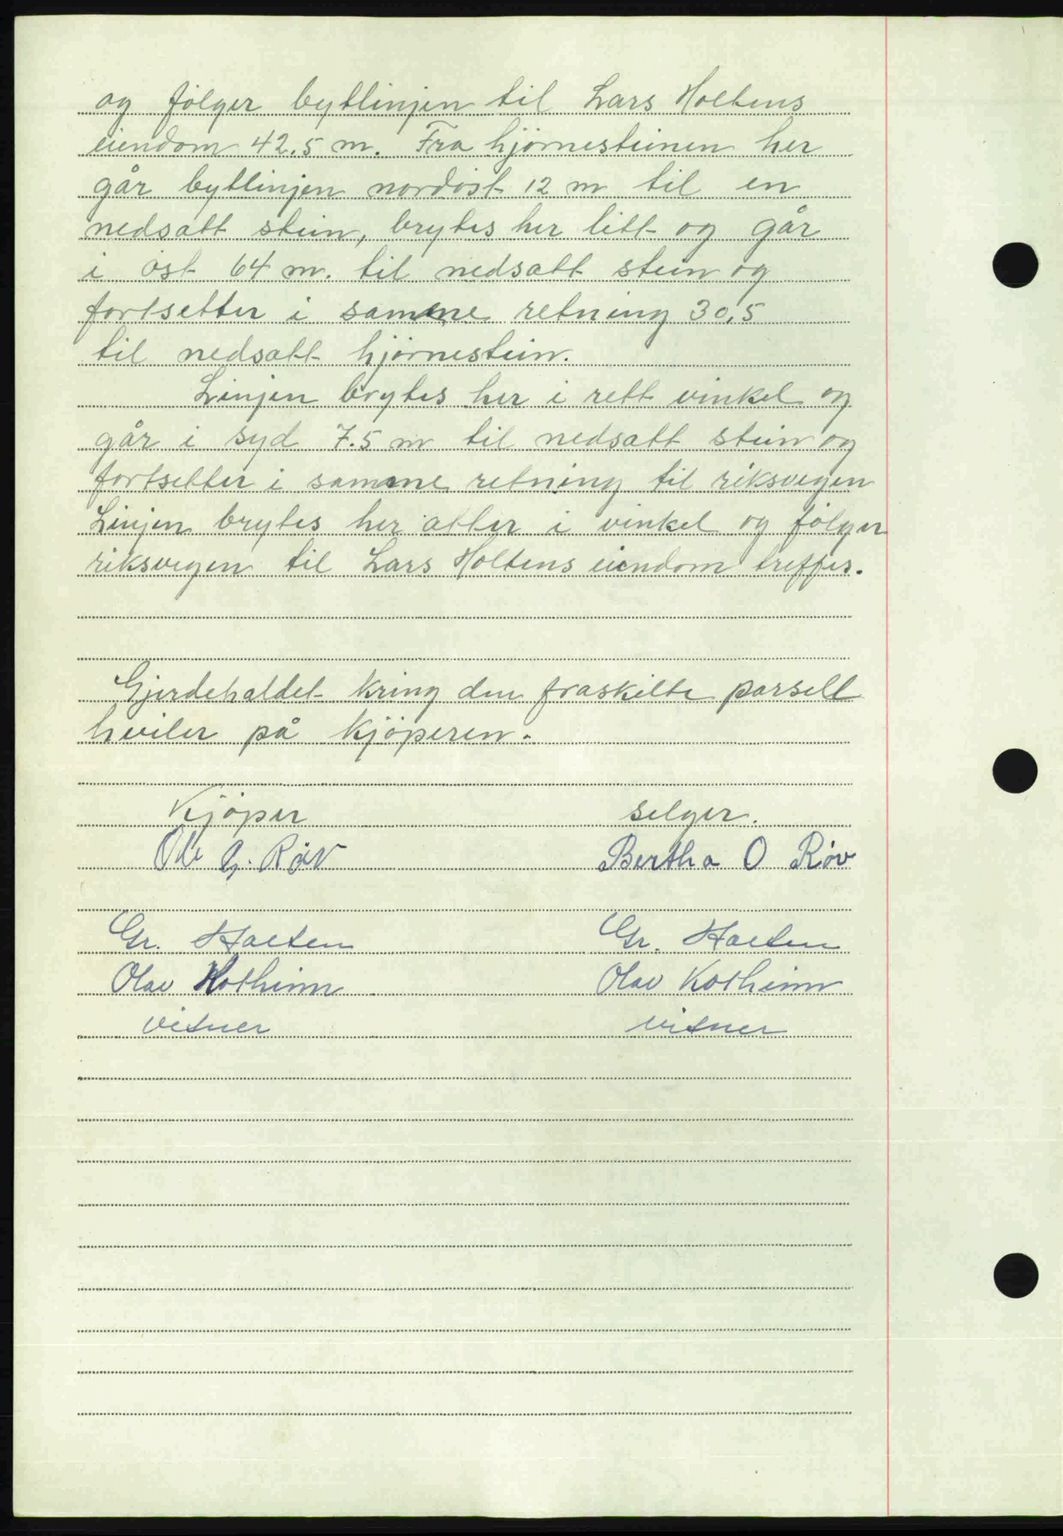 og følger bytlinjen til Lars Holtens
eiendom 42.5 m. Fra hjørnesteinen her
går bytlinjen nordøst 12 m til en
nedsatt stein, brytes her litt og går
i øst 64 m. til nedsatt stein og
fortsetter i samme retning 30,5
til nedsatt hjørnestein.
Linjen brytes her i rett vinkel og
går i syd 7.5 m til nedsatt stein og
fortsetter i samme retning til riksvegen
Linjen brytes her atter i vinkel og følger
riksvegen til Lars Holtens eiendom treffes.
Gjerdehaldet kring den fraskilte parsell
hviler på kjøperen.
Kjøper selger.
G. Røv Bertha O Røv
Gr. Halten Gr. Halten
Olav Olav
vitner vitner